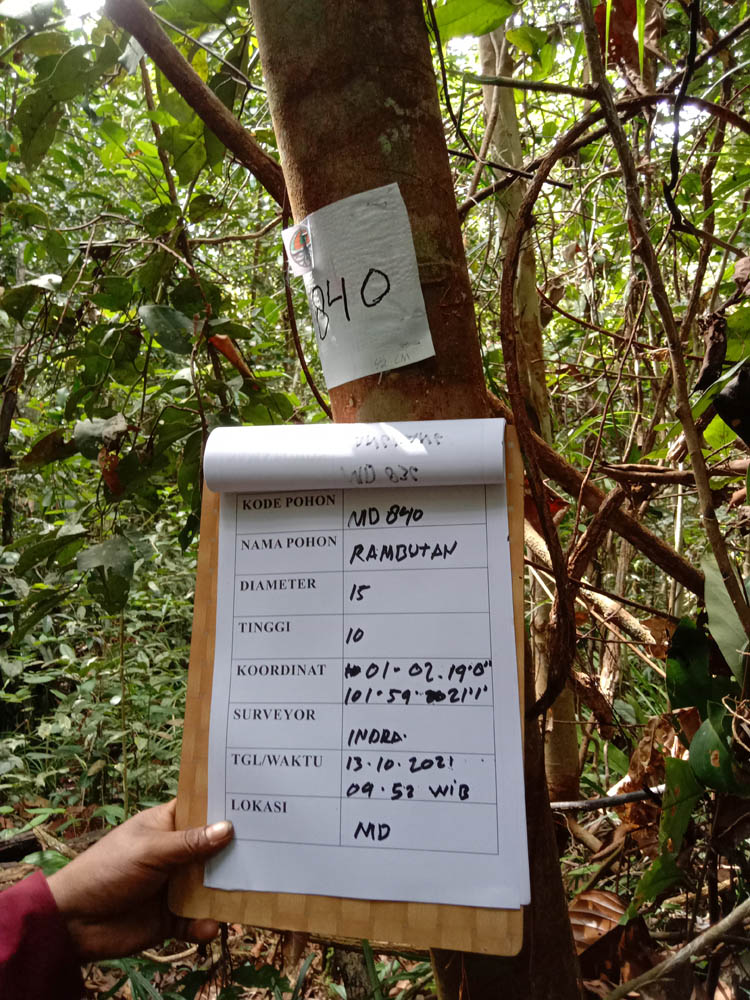 840
42 CM
MD 830
KODE POHON MD 840
NAMA POHON RAMBUTAN
DIAMETER 15
TINGGI 10
KOORDINAT 01.02.19.0"
101.59.21'1'
SURVEYOR INDRA.
TGL/WAKTU 13.10.2021
09.52 WIB
LOKASI MD